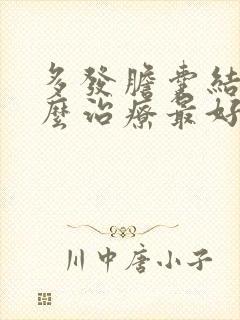 多發膽囊結
麼治療最好
川中唐小子